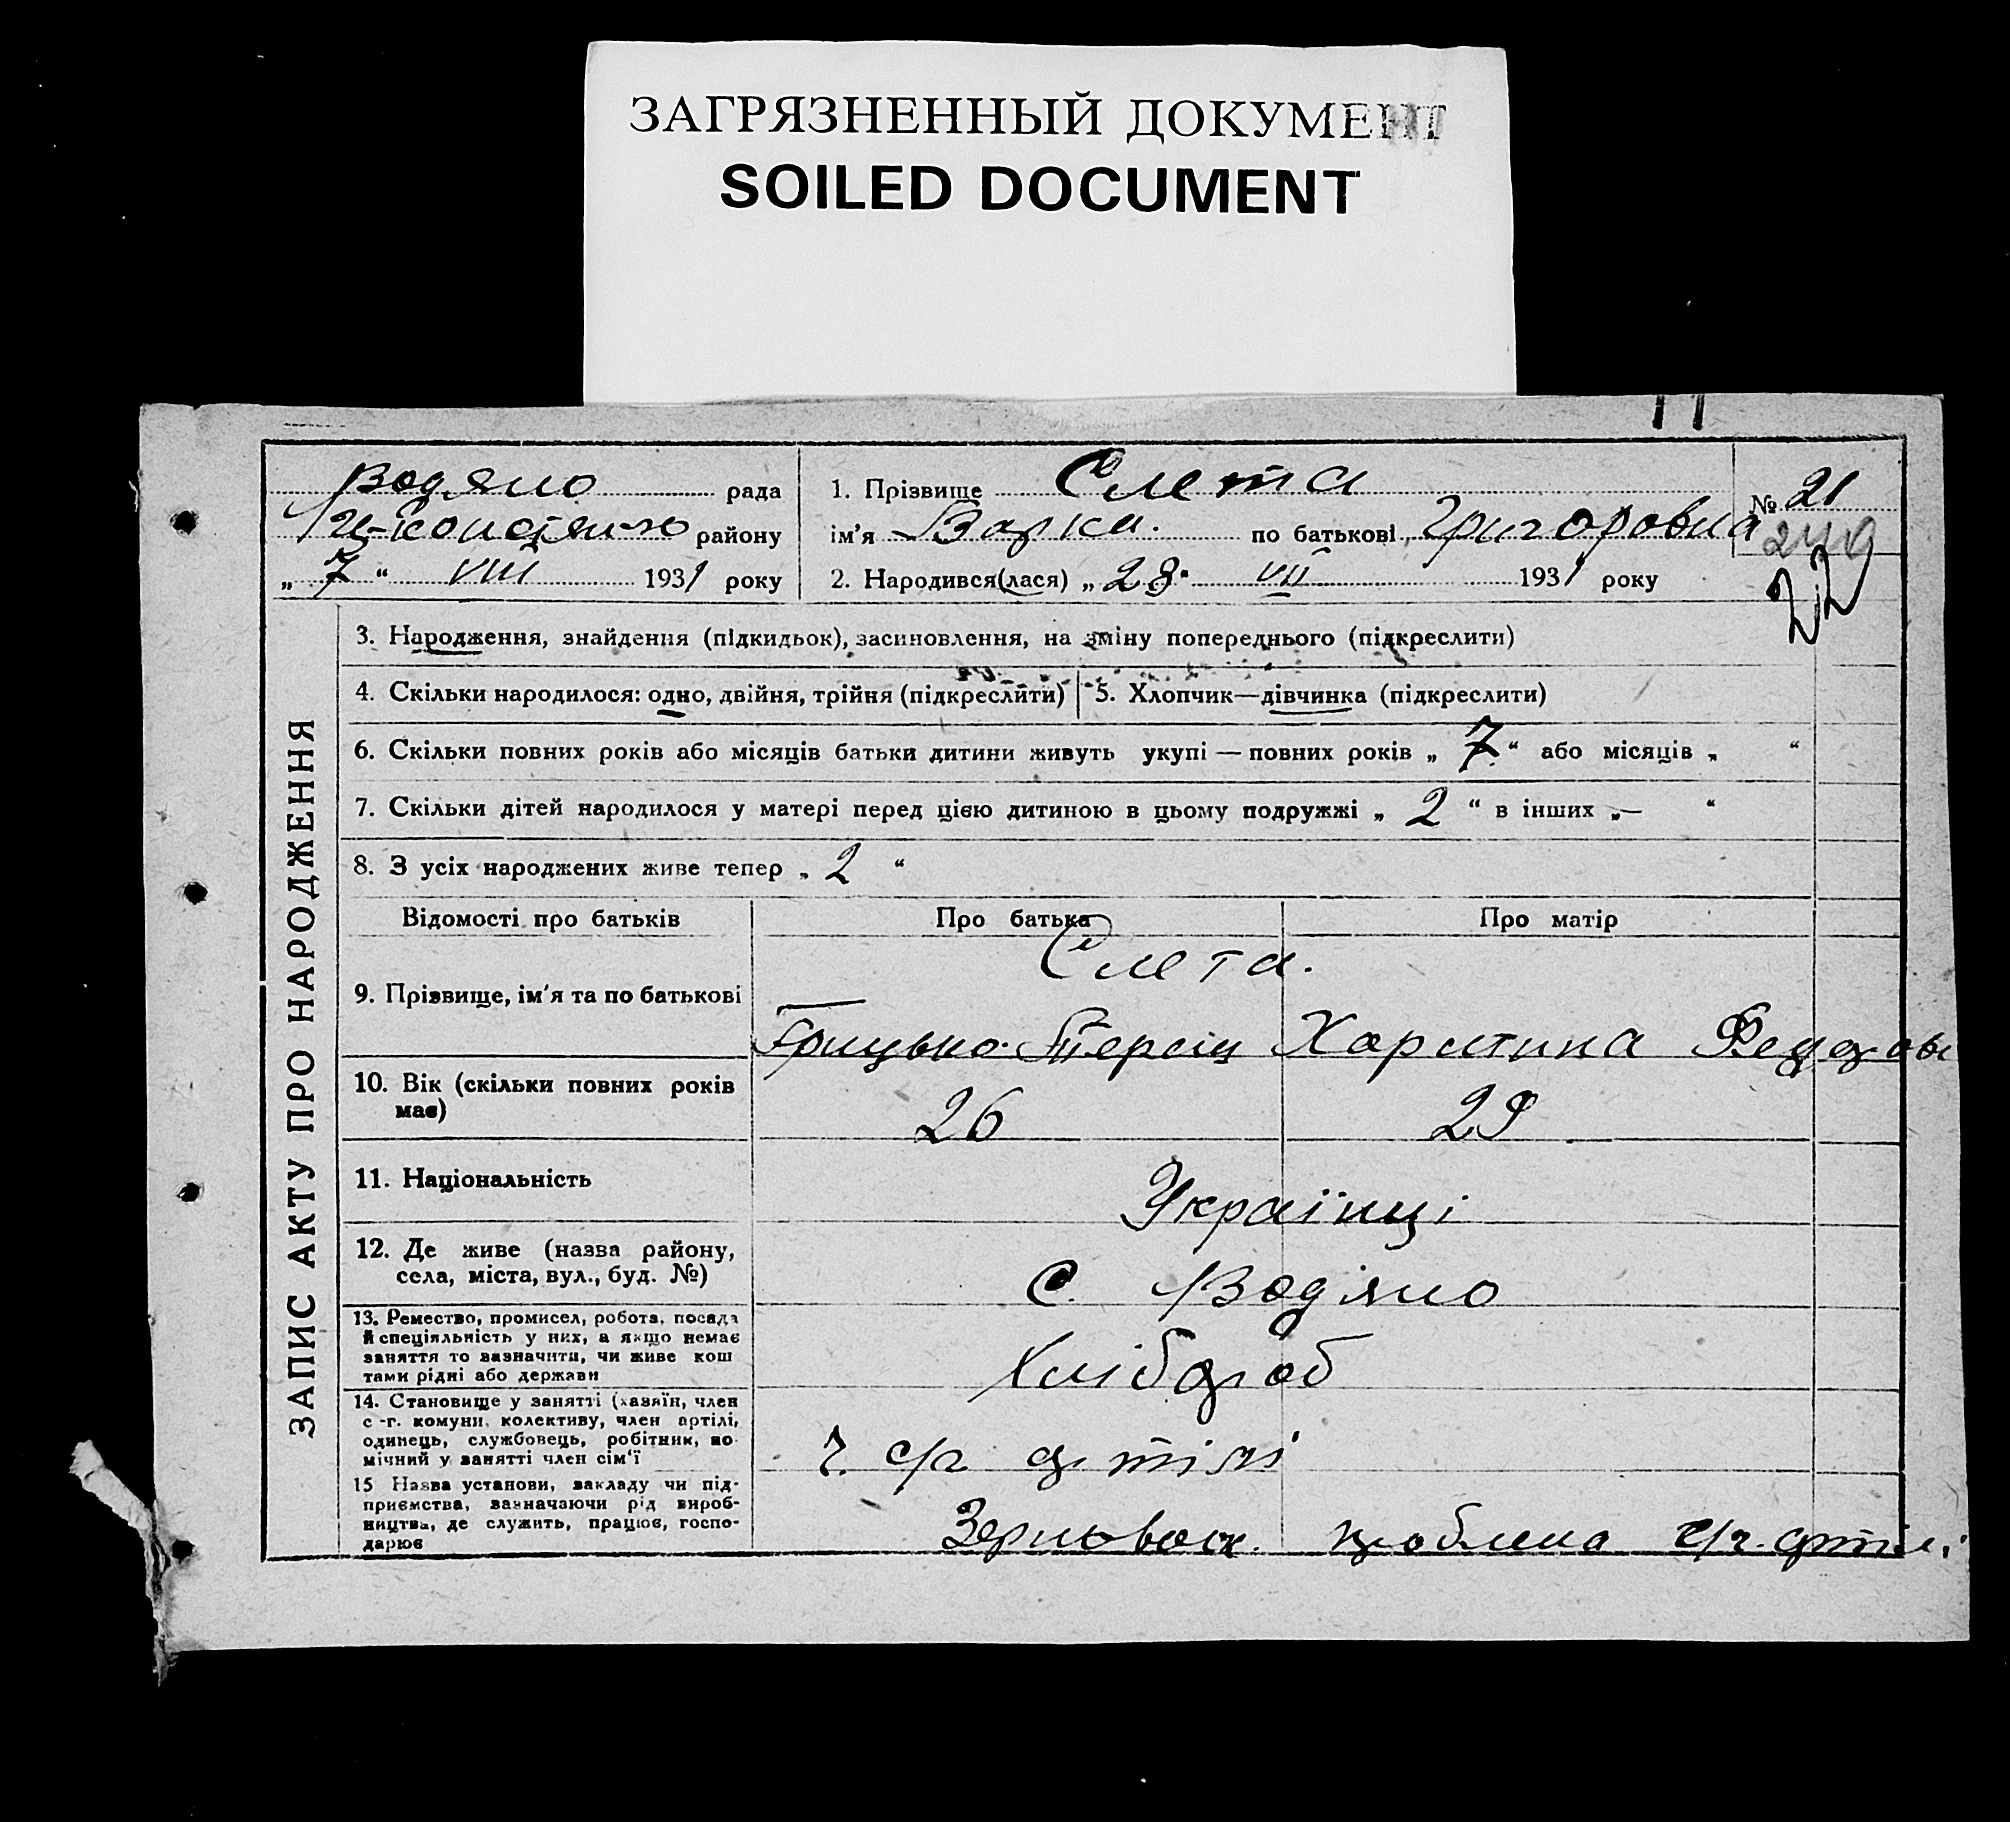 ЗАГРЯЗНЕННЫЙ ДОКУМЕНТ
SOILED DOCUMENT
Водяно рада
району
„ 7 “ VIII 1931 року
1. Прізвище Слета
ім’я Варка. по батькові Григоровна
2. Народився(лася) „ 28 “ VII 1931 року
№ 21
249
22
ЗАПИС АКТУ ПРО НАРОДЖЕННЯ
3. Народження, знайдення (підкидьок), засиновлення, на зміну попереднього (підкреслити)
4. Скільки народилося: одно, двійня, трійня (підкреслити)
5. Хлопчик—дівчинка (підкреслити)
6. Скільки повних років або місяців батьки дитини живуть укупі — повних років „ 7 “ або місяців „ “
7. Скільки дітей народилося у матері перед цією дитиною в цьому подружжі „ 2 “ в інших „— “
8. З усіх народжених живе тепер „ 2 “
Відомості про батьків
Про батька
Про матір
9. Прізвище, ім’я та по батькові
Слета.
Грицько
Харитина
10. Вік (скільки повних років
має)
26
29
11. Національність
Українці
12. Де живе (назва району,
села, міста, вул., буд. №)
С. Водяно
13. Ремество, промисел, робота, посада
й спеціяльність у них, а якщо немає
заняття то вазначити, чи живе кош
тами рідні або держави
Хлібороб
14. Становище у занятті (хазяїн, член
с -г. комуни, колективу, член артілі,
одинець, службовець, робітник, по-
мічний у занятті член сім’ї
ч. с/г артілі
15 Назва установи, закладу чи під-
приємства, зазначаючи рід вироб-
ництва, де служить, працює, госпо-
дарює
с/г. артілі